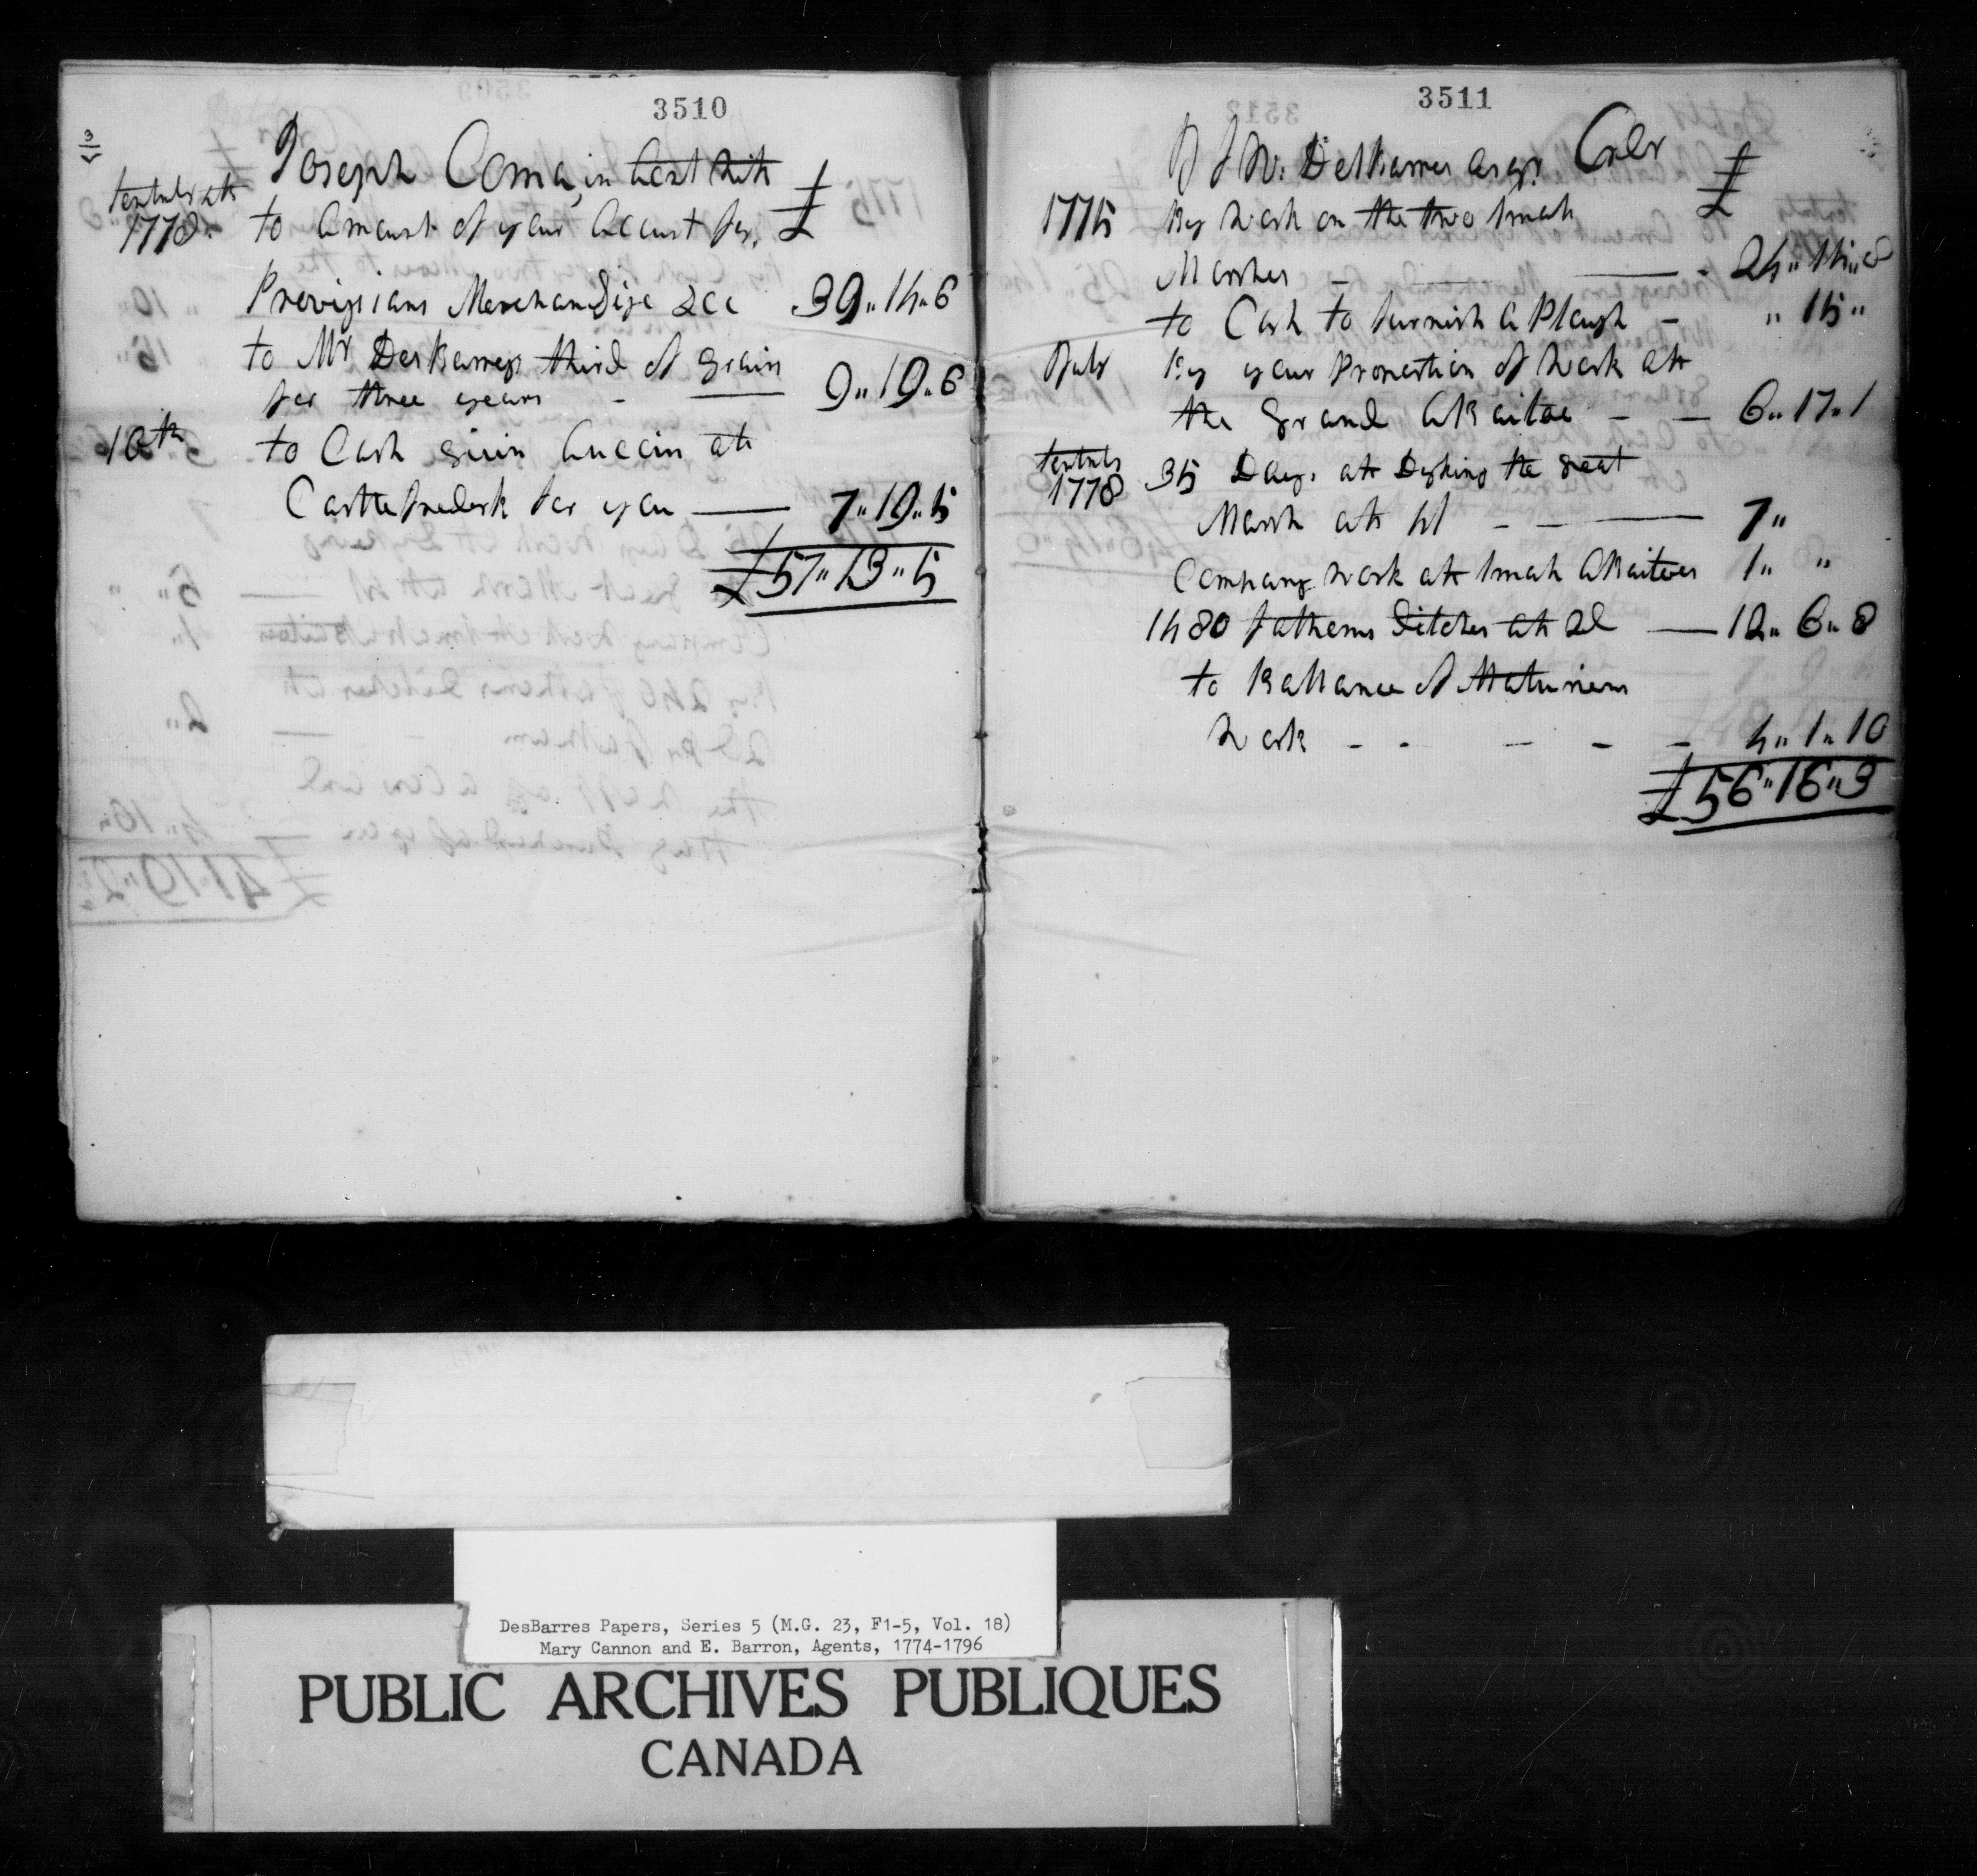 3510
3
Joseph Coma, in Acct with
1778. to Amount of your Account for, £
Provisians Merchandize &cc 39,, 14,, 6
to Mr DesBarres third of grain
for three years - 9,, 19,, 6
10th to Cash givin Auccin att
Castle frederk for you 7,, 19,, 5
£57,, 13,, 5
3511
J F W: DesBarres Esqr. Cr £
1775 By work on the two smah
Marshes - 24,, 15,, 8
to Cash to furnish a Plaugh - ,, 15 ,,
By your Proportion of work att
the Grand ABaitoe - - 6,, 17,, 1
1778 35 Days. att Dyking the great
Marsh att 4/ - - 7,,
Company work att smah ABaitoes 1,, ,,
1480 fathems ditches att 2d 12,, 6,, 8
to Ballance of Maturiens
work - - - - - 4,, 1,, 10
£56,, 16,, 3
DesBarres Papers, Series 5 (M.G. 23, F1-5, Vol. 18)
Mary Cannon and E. Barron, Agents, 1774-1796
PUBLIC ARCHIVES PUBLIQUES
CANADA